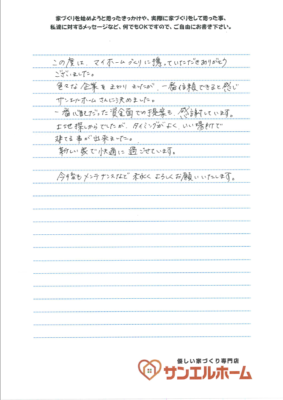 家づくりを始めようと思ったきっかけや、実際に家づくりをして思った事、
私達に対するメッセージなど、何でもOKですので、ご自由にお書き下さい。
この度は、マイホームづくりに携っていただきありがとう
ございました。
色々な企業をまわりましたが、一番信頼できると感じ
サンエルホームさんに決めました。
一番心配だった資金面での提案も、感謝しています。
土地探しからでしたが、タイミングがよく、いい場所で
建てる事が出来ました。
新しい家で快適に過ごせています。
今後もメンテナンスなど末永くよろしくお願いいたします。
優しい家づくり専門店
サンエルホーム